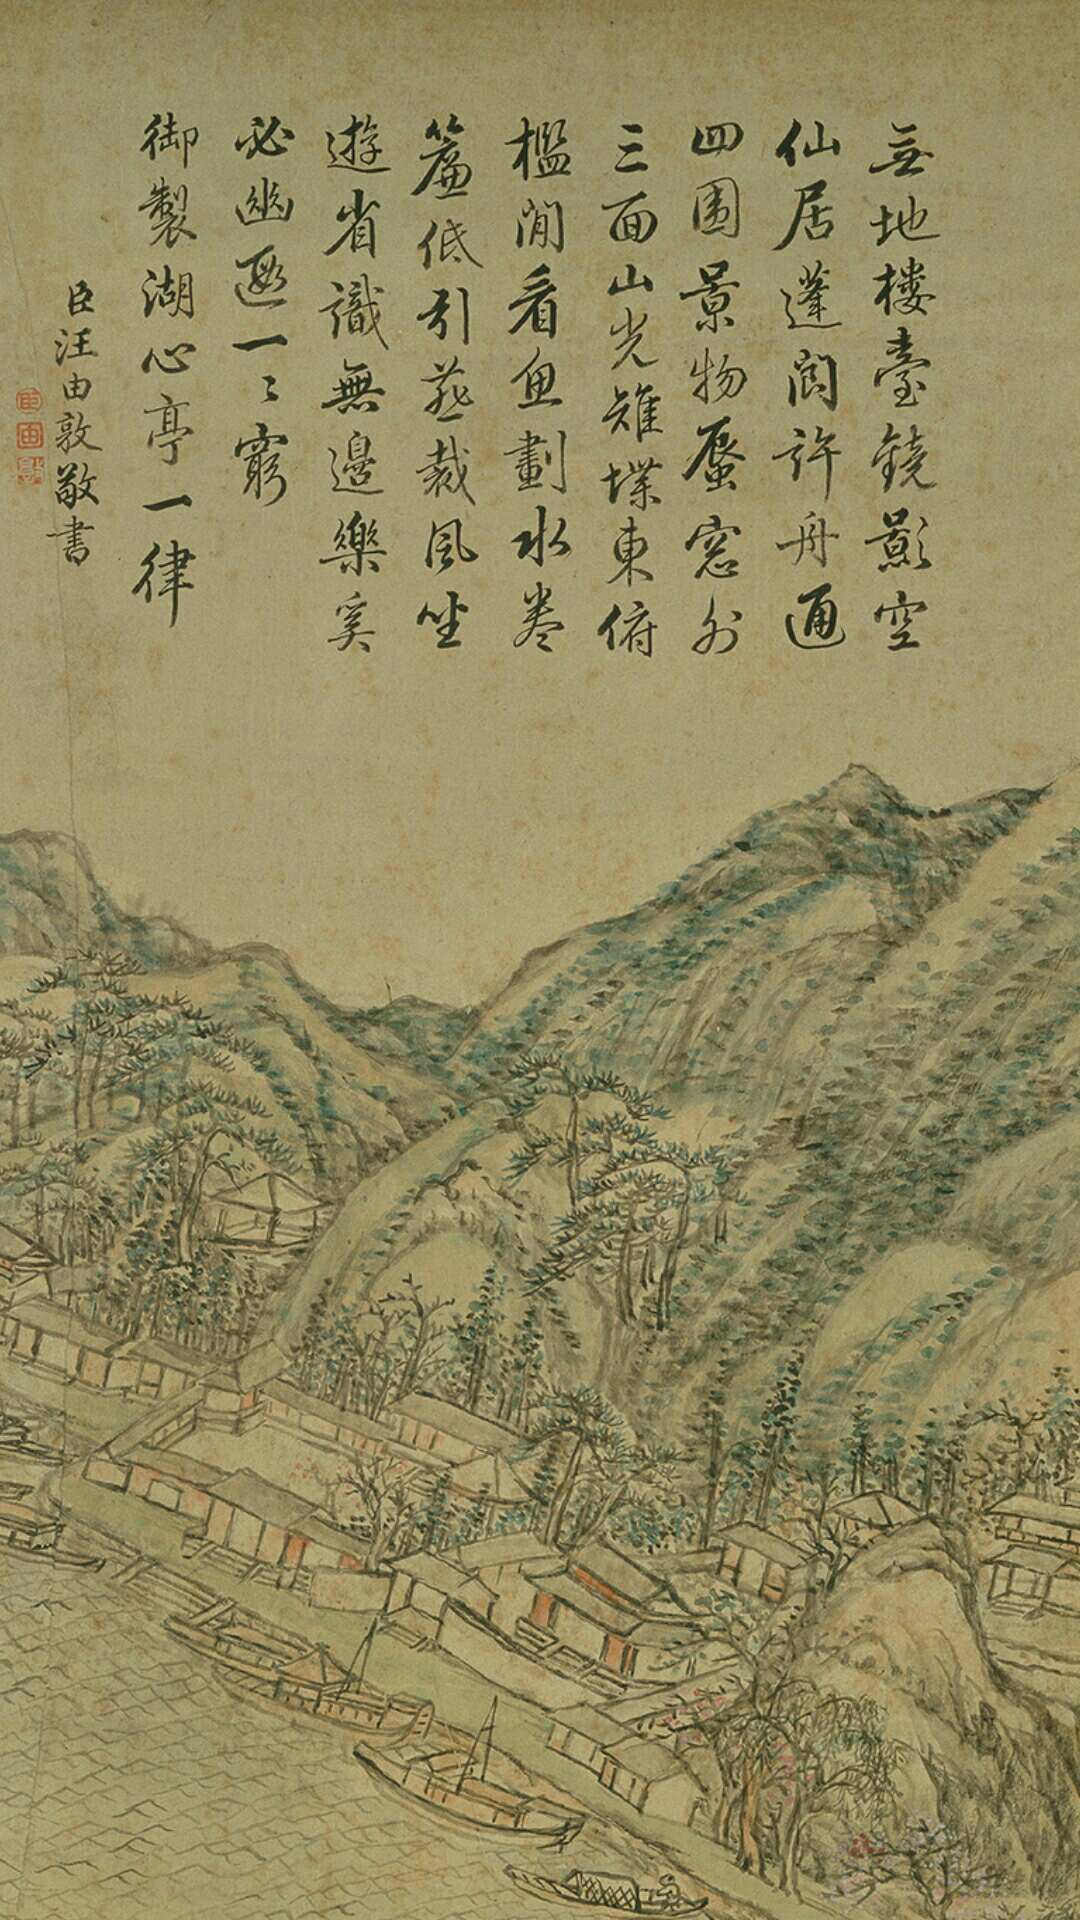 無地樓臺鏡影空
仙居蓬閬許舟通
四圍景物蜃窓外
三面山光雉堞東俯
檻閒看魚劃水卷
簾低引燕裁風坐
遊省識無邊樂奚
必幽遐一〻窮
御製湖心亭一律
臣汪由敦敬書